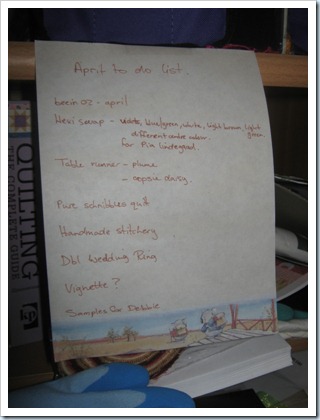 April to do list.
beein oz - april
Hexi swap - white, blue/green, white, light brown, light green.
different centre colour.
for Pia Lindegaard.
Table runner - plume
- sepsu daisy.
Pure schnibbles quilt
Handmade stitchery
Dbl Wedding Ring
Vignette ?
Samples for Debbie
QUILTING
THE COMPLETE GUIDE